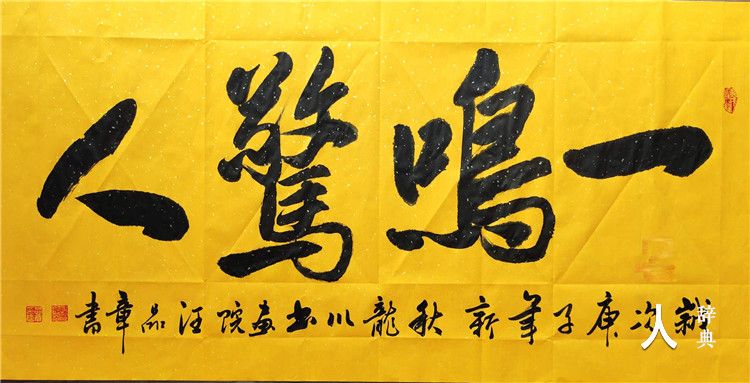 一鳴驚人
歲次庚子年新秋龍川书画院汪品章書
人
辞典